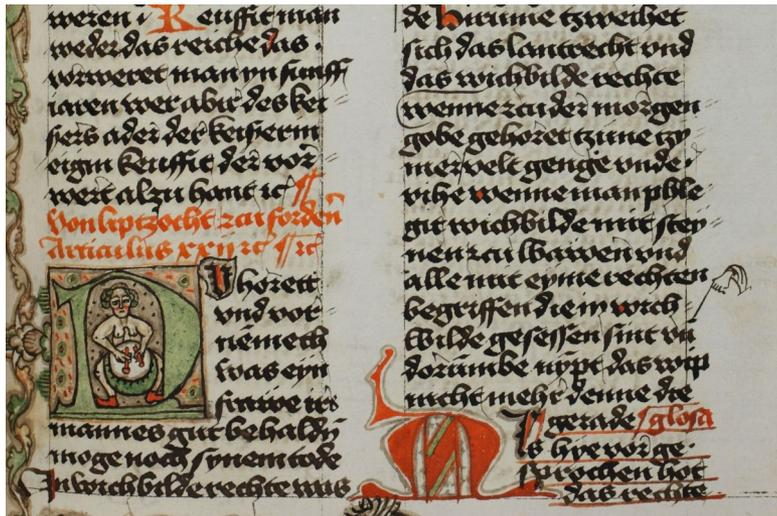 weren · Keuffit man
weder das reiche das ·
vorweret man yn funff
iaren wer abir des kei
sers ader der keiserin
eigin keuffit der vor
wert alzu hant ꝛc
Von liptzocht zcu fordeñ
Articulus xxij ꝛc ꝛc
horett
vnd vor
nemeth
was eyn
frauwe irs
mannes gut behaldṅ
moge noch synem tode
In wichbilde rechte was
de Dirume tzweihet
sich das lantrecht vnd
das wichbilde rechte
wenne zcu der morgen
gobe gehoret tzune tzy
mer velt genge vnde
vihe wenne man pble
git wichbilde mit stey
nen zcu bawen vnd
alle mit eyme rechten
begriffen die in wich
bilde gesessen sint vn
dorumbe nÿpt das wip
nicht mehr denne die
gerade glosa
Is hye vor ge
sprochen hot
das rechte